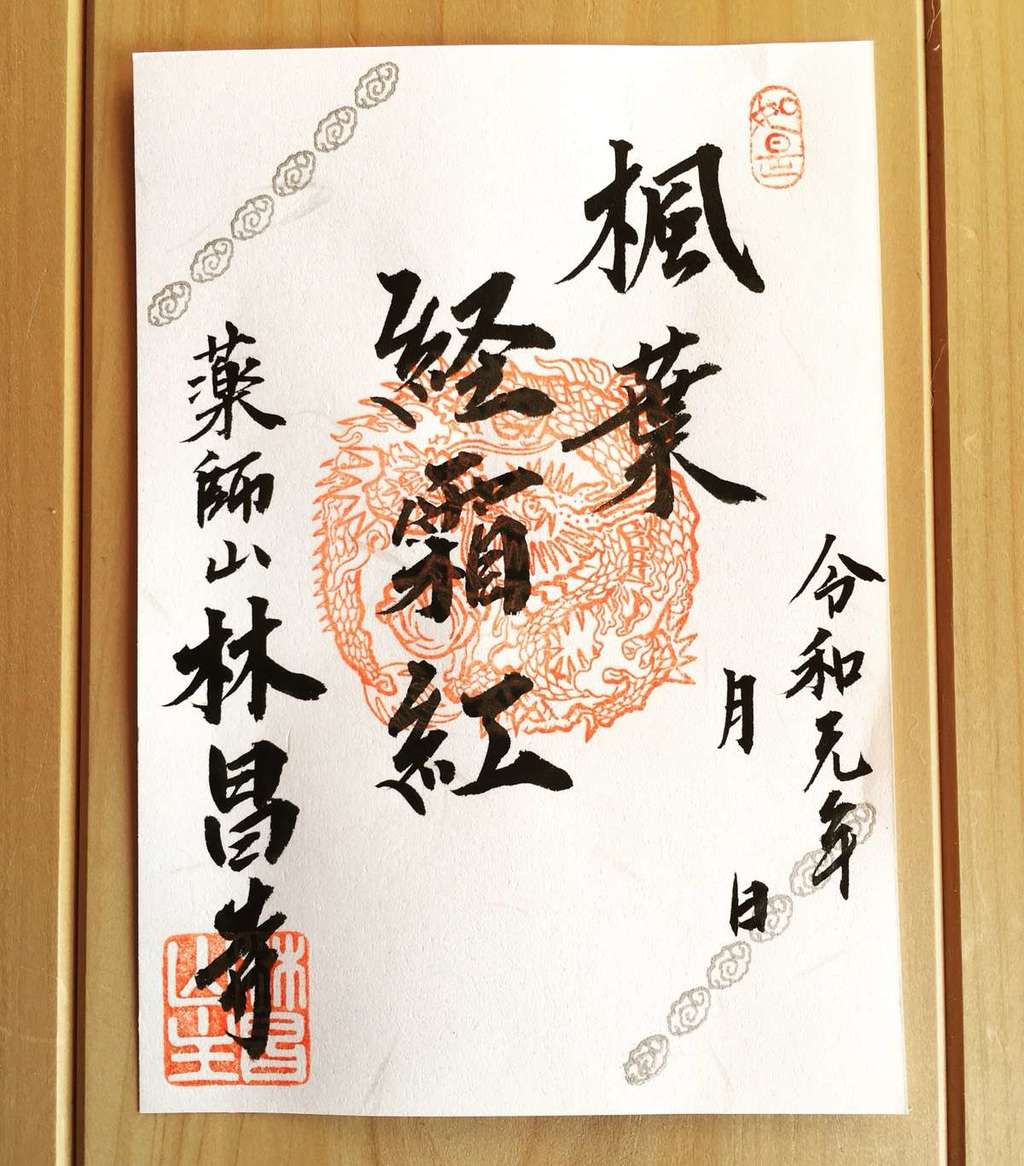 楓葉
経霜紅
令和元年
月　日
薬師山林昌寺